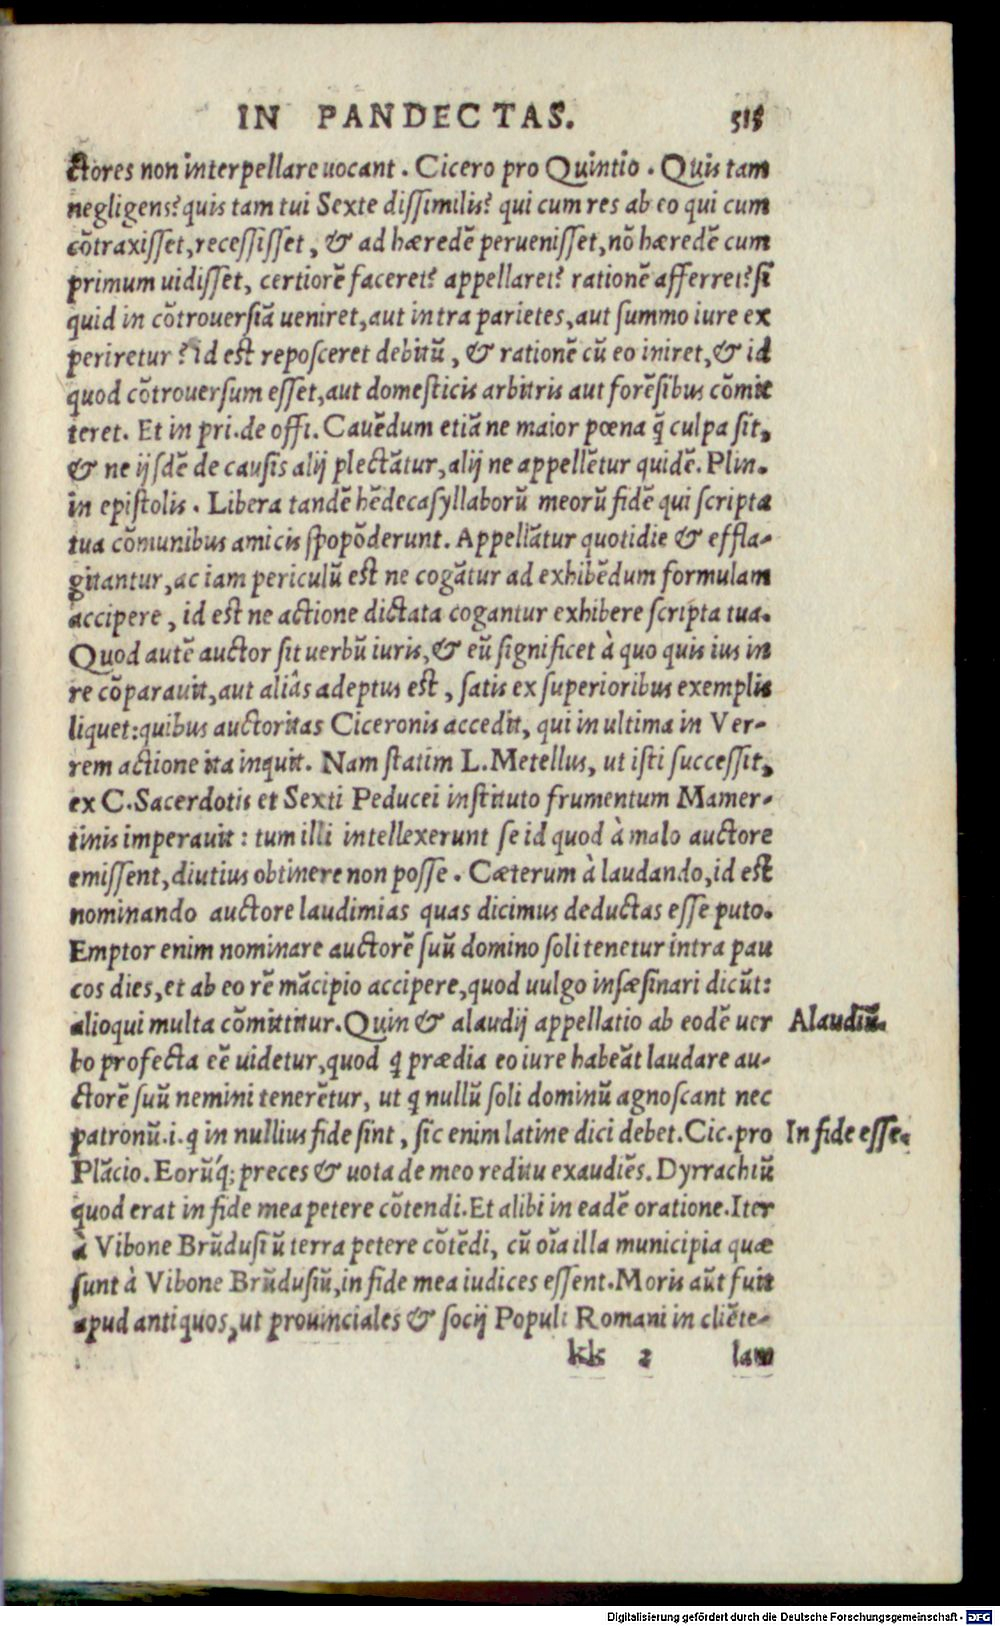 IN PANDECTAS. 515
ctores non interpellare uocant. Cicero pro Quintio. Quis tam
negligens? quis tam tui Sexte dissimilis? qui cum res ab eo qui cum
cõtraxisset, recessisset, & ad hæredẽ peruenisset, nõ hæredẽ cum
primum uidisset, certiorẽ faceret? appellaret? rationẽ afferret? si
quid in cõtrouersiã ueniret, aut intra parietes, aut summo iure ex
periretur? id est reposceret debitũ, & rationẽ cũ eo iniret, & id
quod cõtrouersum esset, aut domesticis arbitris aut forẽsibus cõmit
teret. Et in pri. de offi. Cauẽdum etiã ne maior pœna q̃ culpa sit,
& ne ijsdẽ de causis alij plectãtur, alij ne appellẽtur quidẽ. Plin.
in epistolis. Libera tandẽ hẽdecasyllaborũ meorũ fidẽ qui scripta
tua cõmunibus amicis spopõderunt. Appellãtur quotidie & effla-
gitantur, ac iam periculũ est ne cogãtur ad exhibẽdum formulam
accipere, id est ne actione dictata cogantur exhibere scripta tua.
Quod autẽ auctor sit uerbũ iuris, & eũ significet à quo quis ius in
re cõparauit, aut aliâs adeptus est, satis ex superioribus exemplis
liquet: quibus auctoritas Ciceronis accedit, qui in ultima in Ver-
rem actione ita inquit. Nam statim L. Metellus, ut isti successit,
ex C. Sacerdotis et Sexti Peducei instituto frumentum Mamer-
tinis imperauit: tum illi intellexerunt se id quod à malo auctore
emissent, diutius obtinere non posse. Cæterum à laudando, id est
nominando auctore laudimias quas dicimus deductas esse puto.
Emptor enim nominare auctorẽ suũ domino soli tenetur intra pau
cos dies, et ab eo rẽ mãcipio accipere, quod uulgo insæsinari dicũt:
alioqui multa cõmittitur. Quin & alaudij appellatio ab eodẽ uer
bo profecta eẽ uidetur, quod q̃ prædia eo iure habeãt laudare au-
ctorẽ suũ nemini tenerẽtur, ut q̃ nullũ soli dominũ agnoscant nec
patronũ. i. q̃ in nullius fide sint, sic enim latine dici debet. Cic. pro
Plãcio. Eorũq́; preces & uota de meo reditu exaudiẽs. Dyrrachiũ
quod erat in fide mea petere cõtendi. Et alibi in eadẽ oratione. Iter
à Vibone Brũdusiũ terra petere cõtẽdi, cũ oĩa illa municipia quæ
sunt à Vibone Brũdusiũ, in fide mea iudices essent. Moris aũt fuit
apud antiquos, ut prouinciales & socij Populi Romani in cliẽte-
kk 2 lam
Alaudiũ.
In fide esse.
Digitalisierung gefördert durch die Deutsche Forschungsgemeinschaft - DFG